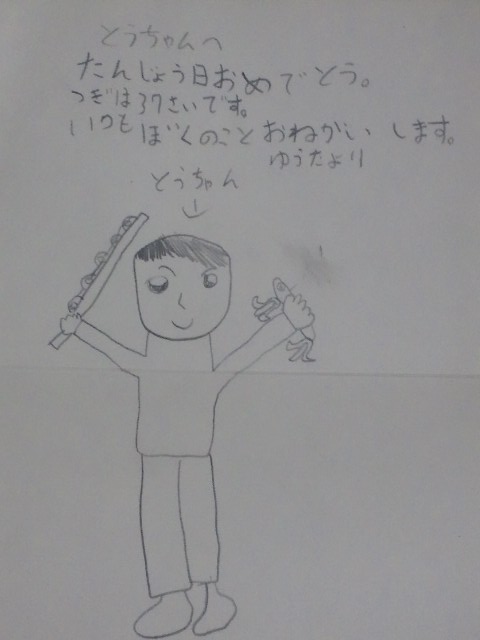 とうちゃんへ
たんじょう日おめでとう。
つぎは37さいです。
いつも ぼくのこと おねがい します。
ゆうたより
とうちゃん